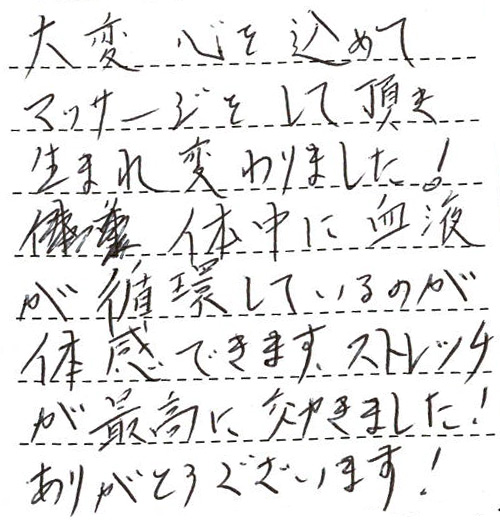 大変 心を 込めて
マッサージを して 頂き
生まれ 変わりました！
体中に 血液
が 循環しているのが
体感できます、ストレッチ
が 最高に 効きました！
ありがとうございます！